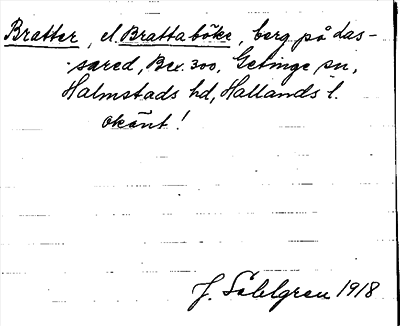 Bratter, el. Brattaböke, berg på Las-
sared, Bex. 300, Getinge sn,
Halmstads hd, Hallands l.
okänt!
J. Sahlgren 1918